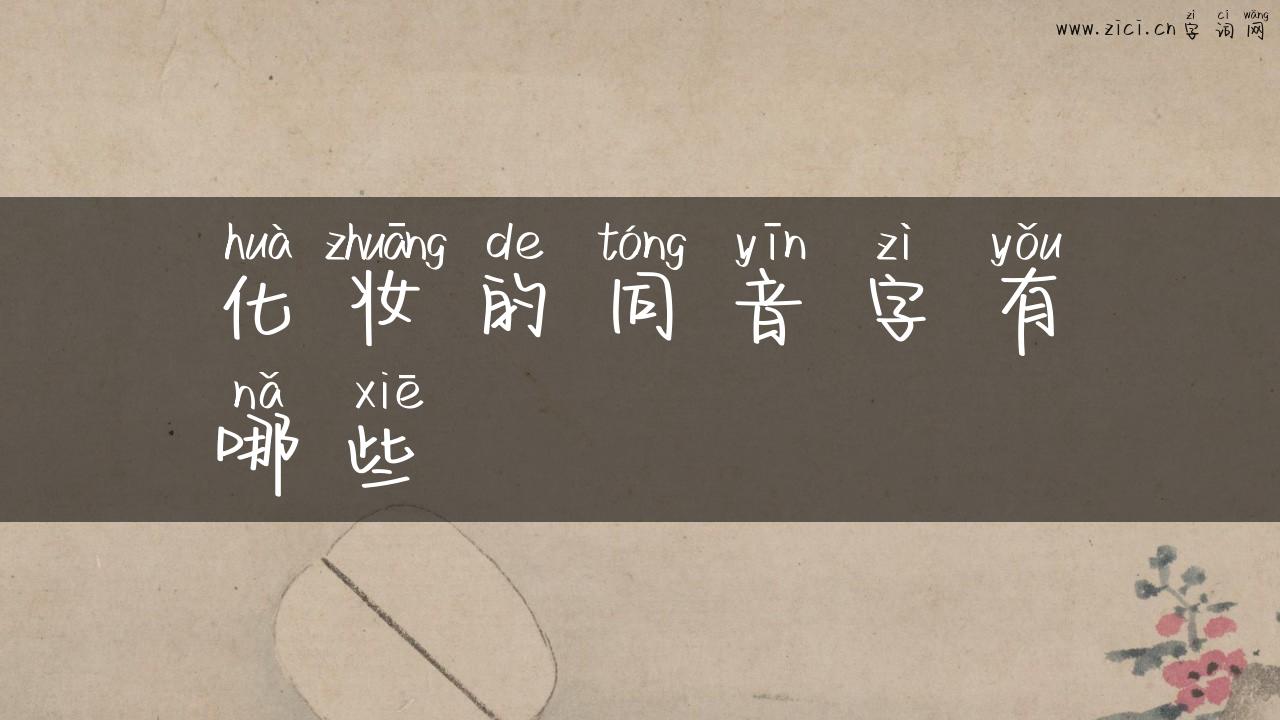 zì cí wǎng
www.zici.cn 字词网
huà zhuāng de tóng yīn zì yǒu
化妆的同音字有
nǎ xiē
哪些